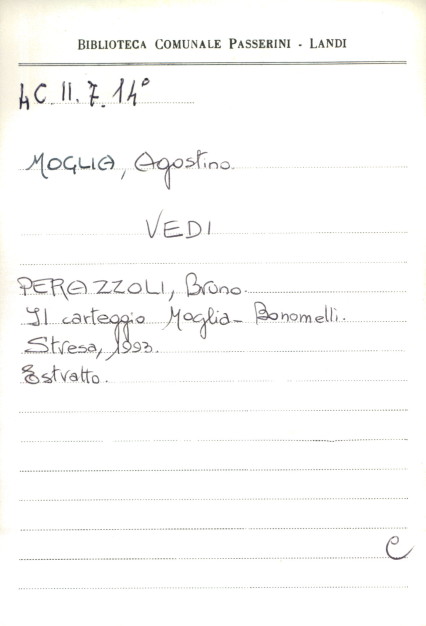 BIBLIOTECA COMUNALE PASSERINI - LANDI
4C. II. 7. 14°
MOGLIA, Agostino.
VEDI
PERAZZOLI, Bruno.
Il carteggio Moglia - Bonomelli.
Stresa, 1993.
Estratto.
C